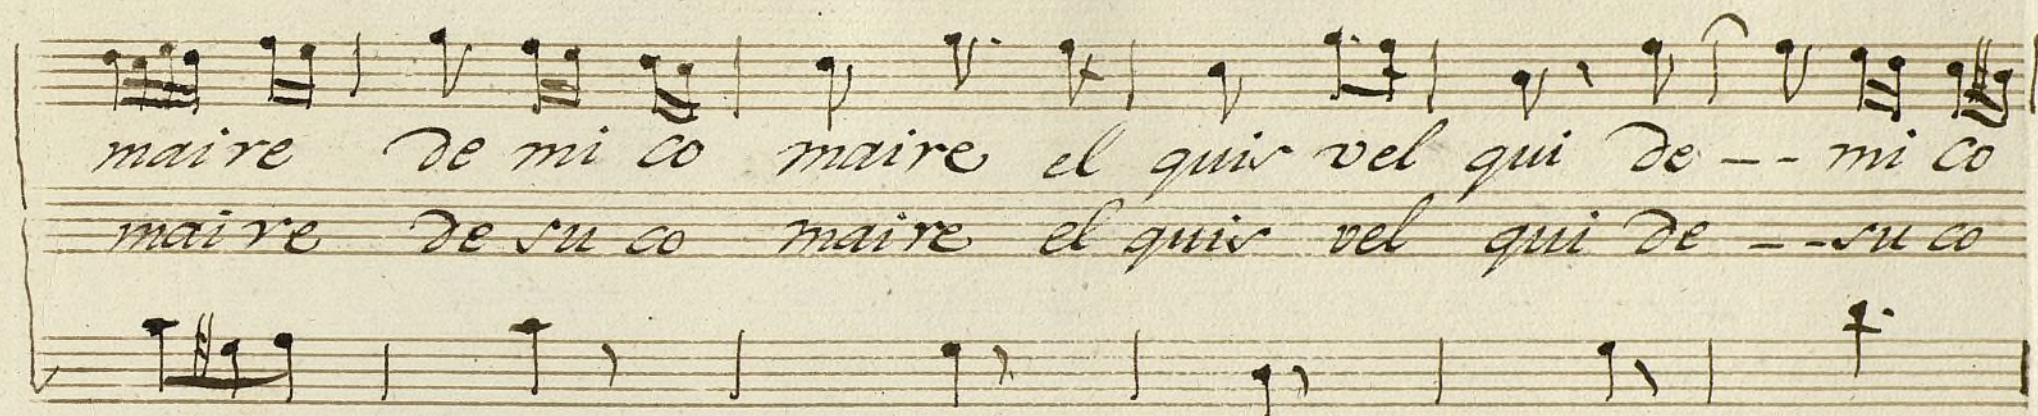 maire de mi co maire el quis vel qui de -- mi co
maire de su co maire el quis vel qui de -- su co